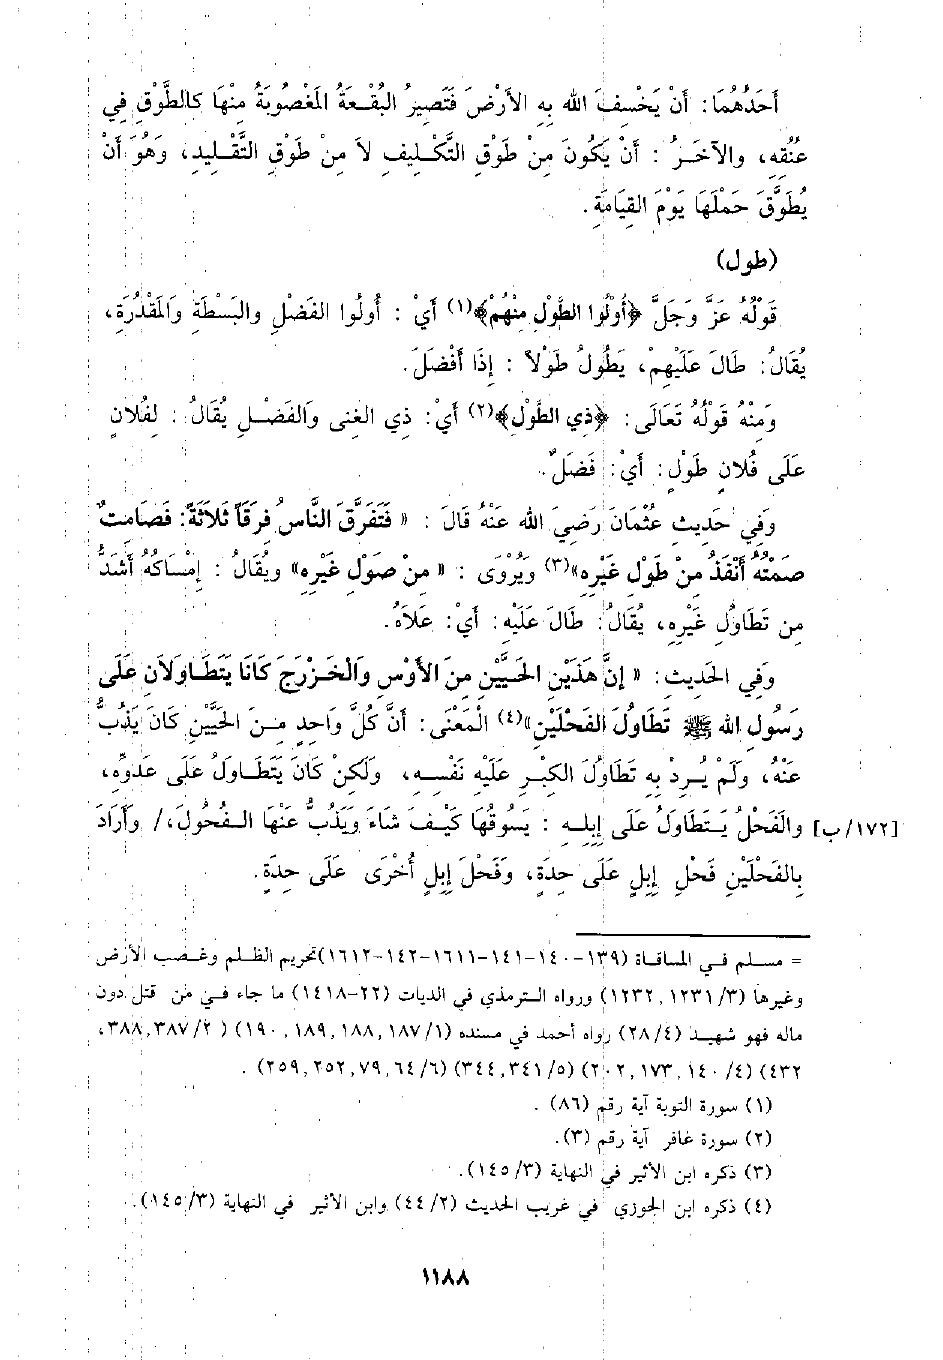 أَحَدُهُمَا: أَنْ يَخْسِفَ الله بِهِ الأَرْضَ فَتَصِيرُ البُقْعَةُ المَغْصُوبَةُ مِنْهَا كَالطَّوْقِ فِي
عُنُقِهِ، والآخَرُ : أَنْ يَكُونَ مِنْ طَوْقِ التَّكْلِيفِ لاَ مِنْ طَوْقِ التَّقْلِيدِ، وَهُوَ أَنْ
يُطَوَّقَ حَمْلَهَا يَوْمَ القِيَامَةِ.
(طول)
قَوْلُهُ عَزَّ وَجَلَّ ﴿أُوْلُوا الطَّوْلِ مِنْهُمْ﴾(١) أَيْ : أُولُوا الفَضْلِ والبَسْطَةِ وَالمَقْدُرَةِ،
يُقَالُ: طَالَ عَلَيْهِمْ، يَطُولُ طَوْلاً : إِذَا أَفْضَلَ.
وَمِنْهُ قَوْلُهُ تَعَالَى: ﴿ذِي الطَّوْلِ﴾(٢) أَيْ: ذِي الغِنى وَالفَضْلِ يُقَالُ : لِفُلانٍ
عَلَى فُلانٍ طَوْلٌ: أَيْ: فَضْلٌ.
وَفِي حَدِيثِ عُثْمَانَ رَضِيَ الله عَنْهُ قَالَ : « فَتَفَرَّقَ النَّاسُ فِرَقاً ثَلاثَةً: فَصَامِتٌ
صَمْتُهُ أَنْفَذُ مِنْ طَوْلِ غَيْرِهِ»(٣) وَيُرْوَى : « مِنْ صَوْلِ غَيْرِهِ» ويُقَالُ : إِمْسَاكُهُ أَشَدُّ
مِن تَطَاوُلِ غَيْرِهِ، يُقَالُ: طَالَ عَلَيْهِ: أَيْ: عَلاَهُ.
وَفِي الحَدِيثِ: « إِنَّ هَذَيْنِ الحَيَّيْنِ مِنَ الأَوْسِ وَالْخَزْرَجَ كَانَا يَتَطَاوَلاَنِ عَلَى
رَسُولِ الله ﷺ تَطَاوُلَ الفَحْلَيْنِ»(٤) الْمَعْنَى: أَنَّ كُلَّ وَاحِدٍ مِنَ الحَيَّيْنِ كَانَ يَذُبُّ
عَنْهُ، وَلَمْ يُرِدْ بِهِ تَطَاوُلَ الكِبْرِ عَلَيْهِ نَفْسِهِ، وَلَكِنْ كَانَ يَتَطَاوَلُ عَلَى عَدُوِّهِ،
[١٧٢/ب] والفَحْلُ يَتَطَاوَلُ عَلَى إِبِلِهِ : يَسُوقُهَا كَيْفَ شَاءَ وَيَذُبُّ عَنْهَا الفُحُولَ،/ وَأَرَادَ
بِالفَحْلَيْنِ فَحْلَ إِبِلٍ عَلَى حِدَةٍ، وَفَحْلَ إِبِلٍ أُخْرَى عَلَى حِدَةٍ.
= مسلم في المساقاة (١٣٩-١٤٠-١٤١-١٦١١-١٤٢-١٦١٢)تحريم الظلم وغصب الأرض
وغيرها (٣/ ١٢٣١, ١٢٣٢) ورواه الترمذي في الديات (٢٢-١٤١٨) ما جاء في من قتل دون
ماله فهو شهيد (٤/ ٢٨) رواه أحمد في مسنده (١/ ١٨٧, ١٨٨, ١٨٩, ١٩٠) ( ٢/ ٣٨٧, ٣٨٨,
٤٣٢) (٤/ ١٤٠, ١٧٣, ٢٠٢) (٥/ ٣٤١, ٣٤٤) (٦/ ٦٤, ٧٩, ٢٥٢, ٢٥٩) .
(١) سورة التوبة آية رقم (٨٦) .
(٢) سورة غافر آية رقم (٣).
(٣) ذكره ابن الأثير في النهاية (٣/ ١٤٥).
(٤) ذكره ابن الجوزي في غريب الحديث (٢/ ٤٤) وابن الأثير في النهاية (٣/ ١٤٥).
١١٨٨